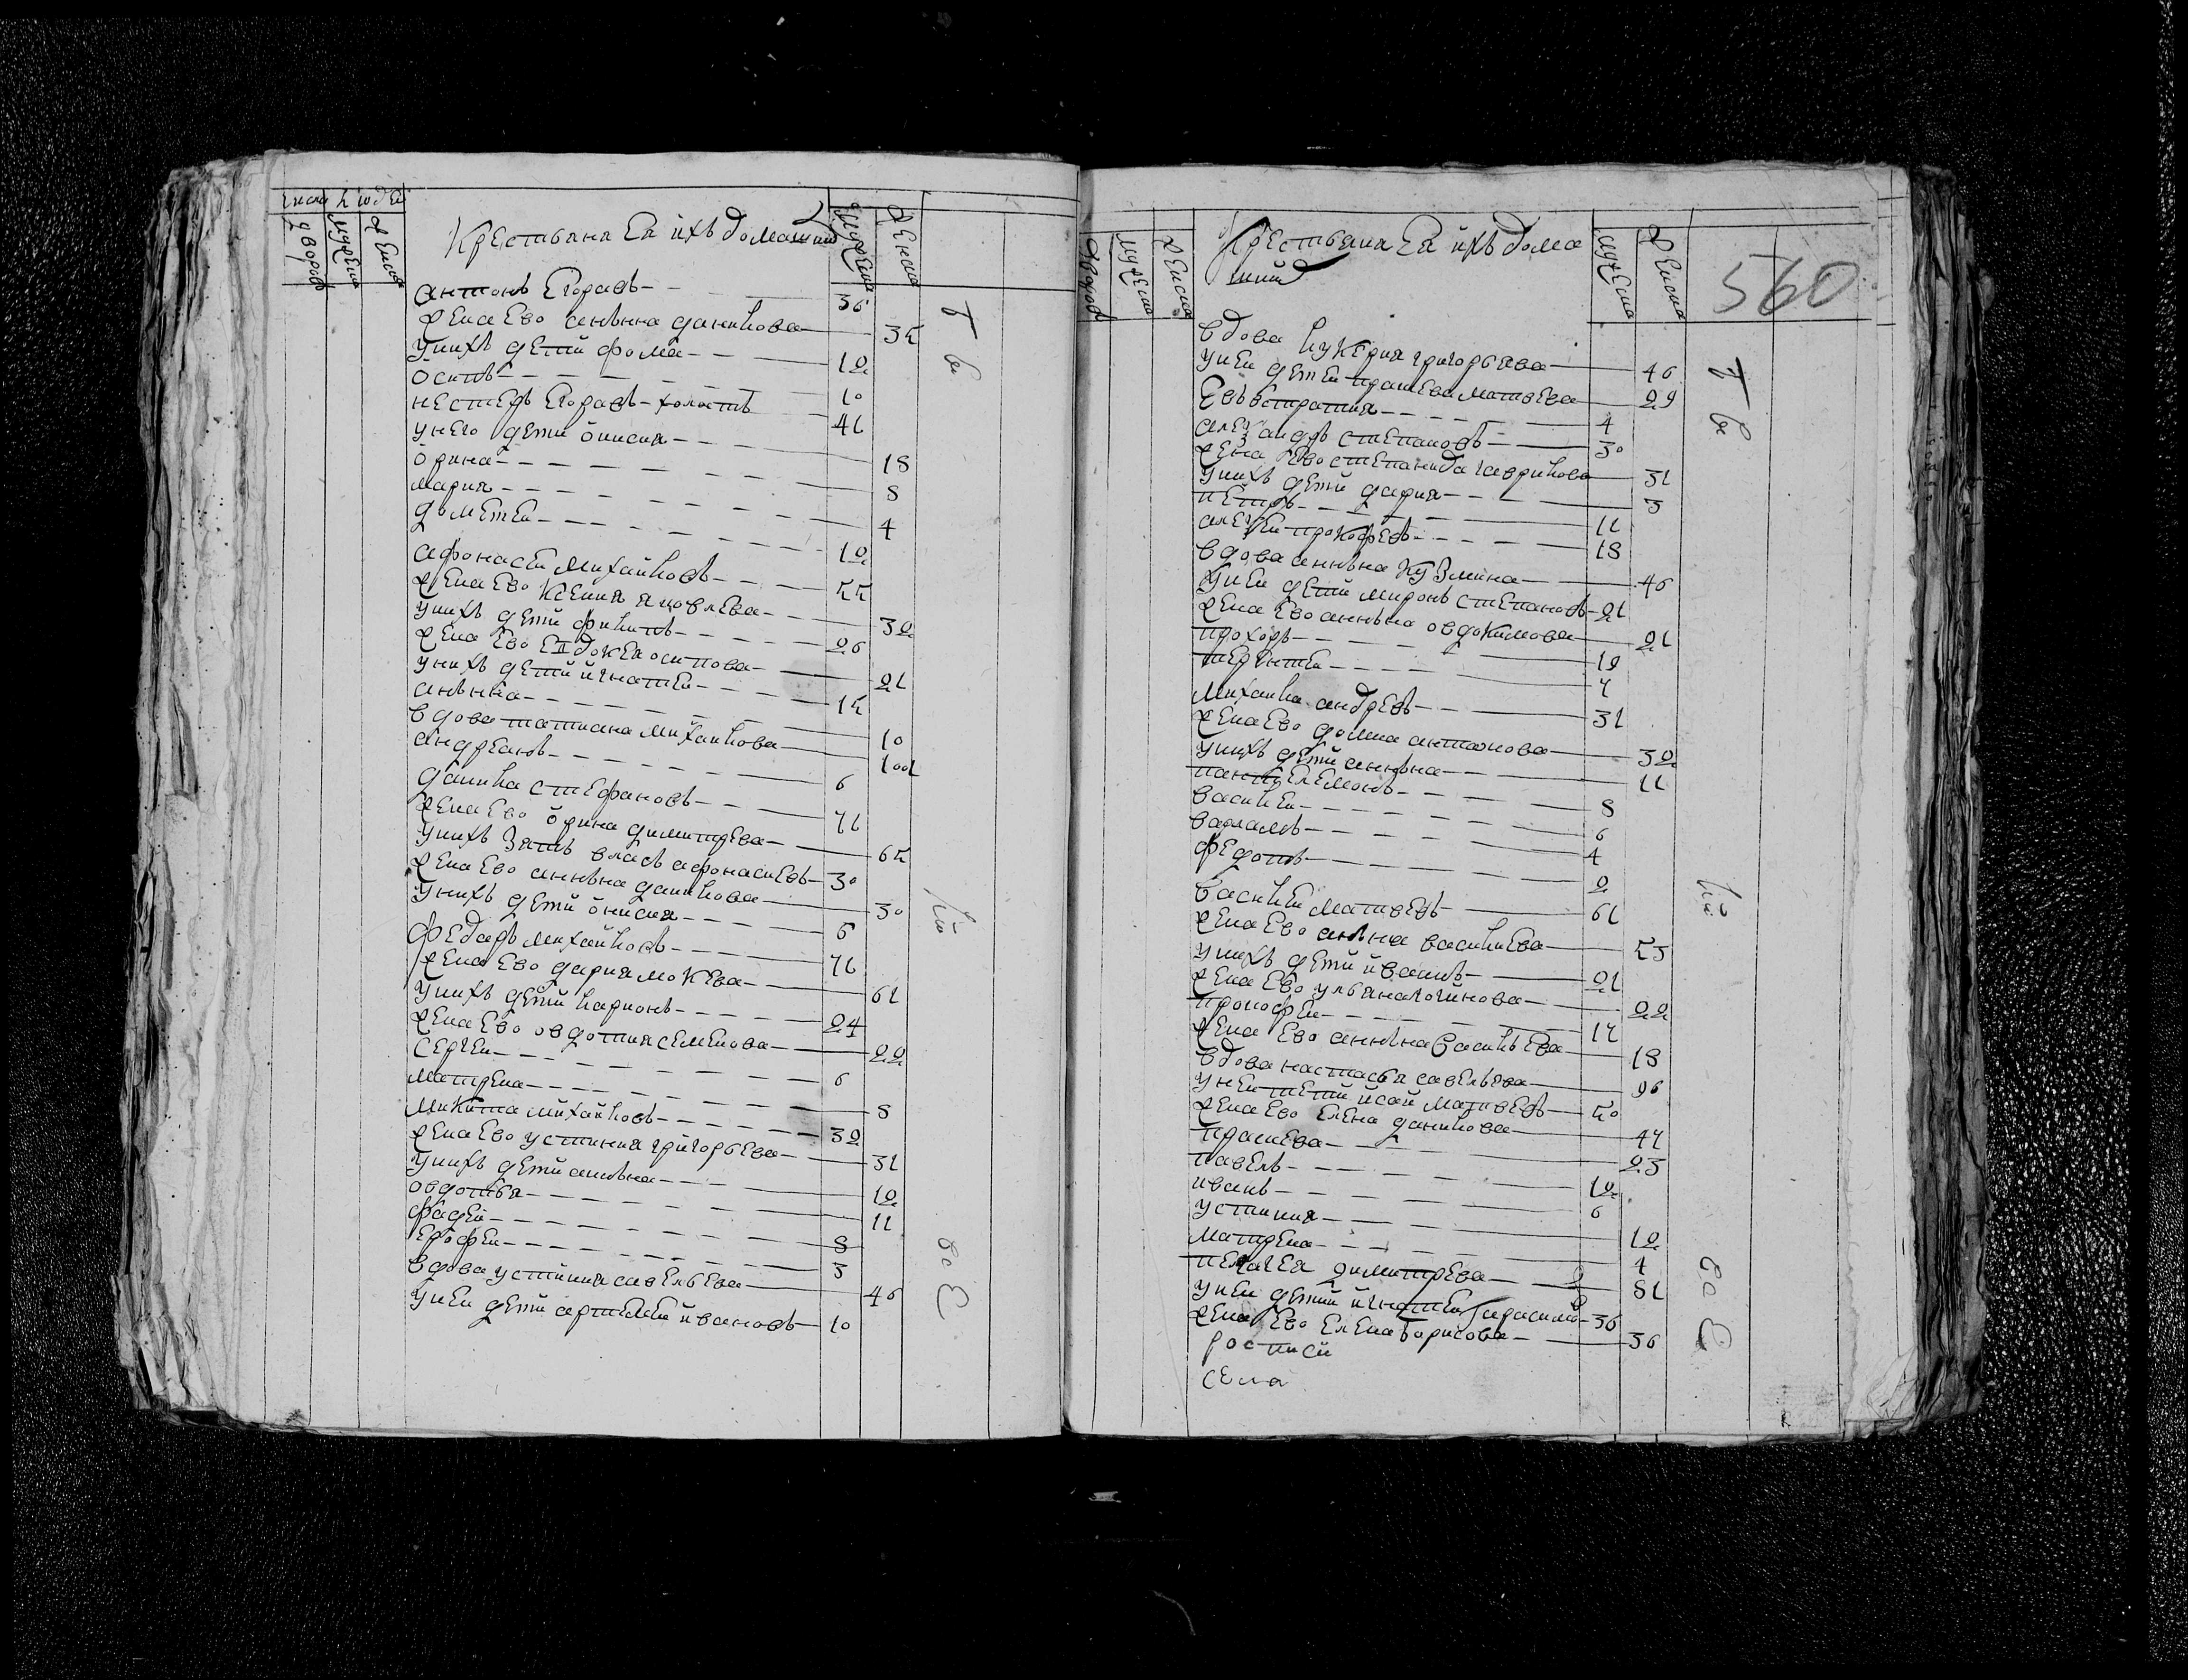 числа людей
дворов
мужеска
женска
Крестьяна Ея ихъ домашнии
мужеска
женска
антонъ Егоравъ 36
жена Ево анънна данилова 35
уних детии фома 12
осипъ 10
нестеръ Егоравъ холастъ 41
унего детии онисия 18
орина 8
мария 4
дометеи 12
афонасеи михаиловъ 55
жена Ево ксения яковлева 32
унихъ детии филипъ 26
жена Ево Евдокея осипова 21
унихъ детии игнатеи 15
анънна 10
вдова татиана михаилова
андреанъ 6
данила стефановъ 71
жена Ево орина димитрева 65
унихъ зять власъ афонасиевъ 30
жена Ево анънна данилова 30
унихъ детии онисия 6
федаръ михаиловъ 71
жена Ево дария мокева 61
унихъ детии ларионъ 24
жена Ево овдотия семенова 22
сергеи 6
матрена 8
микита михаиловъ 32
жена Ево устиния григорьева 31
унихъ детии анънна 12
овдотья 11
фадеи 8
Ерофеи 3
вдова устиния савельева 46
унеи детии артемеи ивановъ 10
дворов
мужеска
женска
Крестьяна Ея ихъ дома
шнии
мужеска
женска
560
вдова лукерия григорьева 46
унеи детеи прасковя матвева 29
Евъстратия 4
александръ степановъ 30
жена Ево степанида гаврилова 31
унихъ детии дария 3
петръ 11
алексеи прокофевъ 18
вдова анънна кузмина 46
унеи детии миронъ степановъ 21
жена Ево анънна овдокимова 21
прохоръ 12
терентеи 7
михаила андревъ 31
жена Ево домна антонова 32
унихъ детии анънна 11
пантелемонъ 8
василеи 6
варламъ 4
федотъ 2
василеи матвевъ 61
жена Ево анънна василиева 53
унихъ детии иванъ 21
жена Ево ульяна логинова 22
прокофеи 17
жена Ево анънна василъева 18
вдова настасья савельева 96
унеи детии исаи матвевъ 50
жена Ево елена данилова 47
прасковя 23
павелъ 12
иванъ 6
устиния 12
матрена 4
пелагея димитрева 81
унеи детии игнатеи гарасимовъ 36
жена Ево елена борисова 36
росписи
села